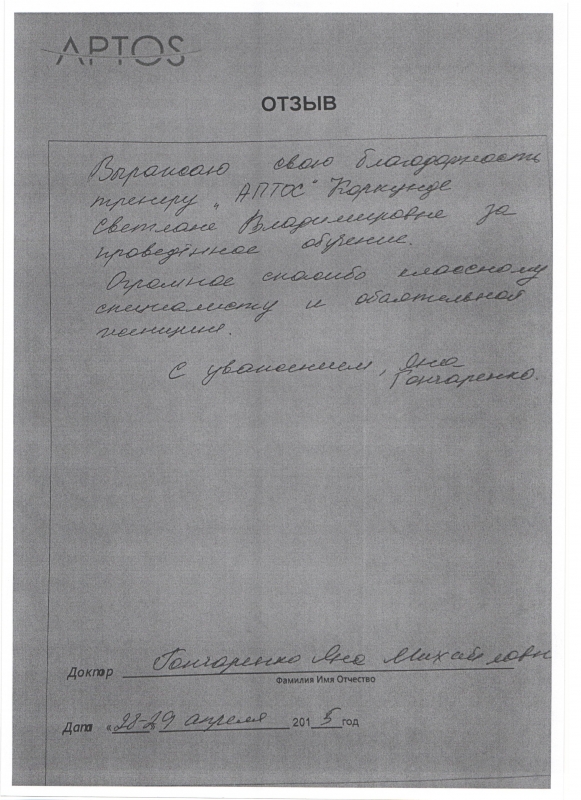 APTOS
ОТЗЫВ
Выражаю свою благодарность
тренеру „АПТОС" Коркунде
Светлане Владимировне за
проведённое обучение.
Огромное спасибо классному
специалисту и обаятельной
женщине.
С уважением, Яна
Гончаренко.
Доктор Гончаренко Яна Михайловн
Фамилия Имя Отчество
Дата «28-29 апреля 2015 год